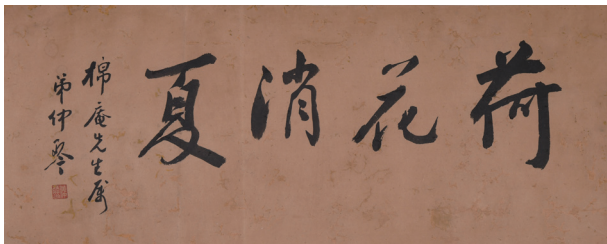 荷花消夏
棉庵先生属
弟仲